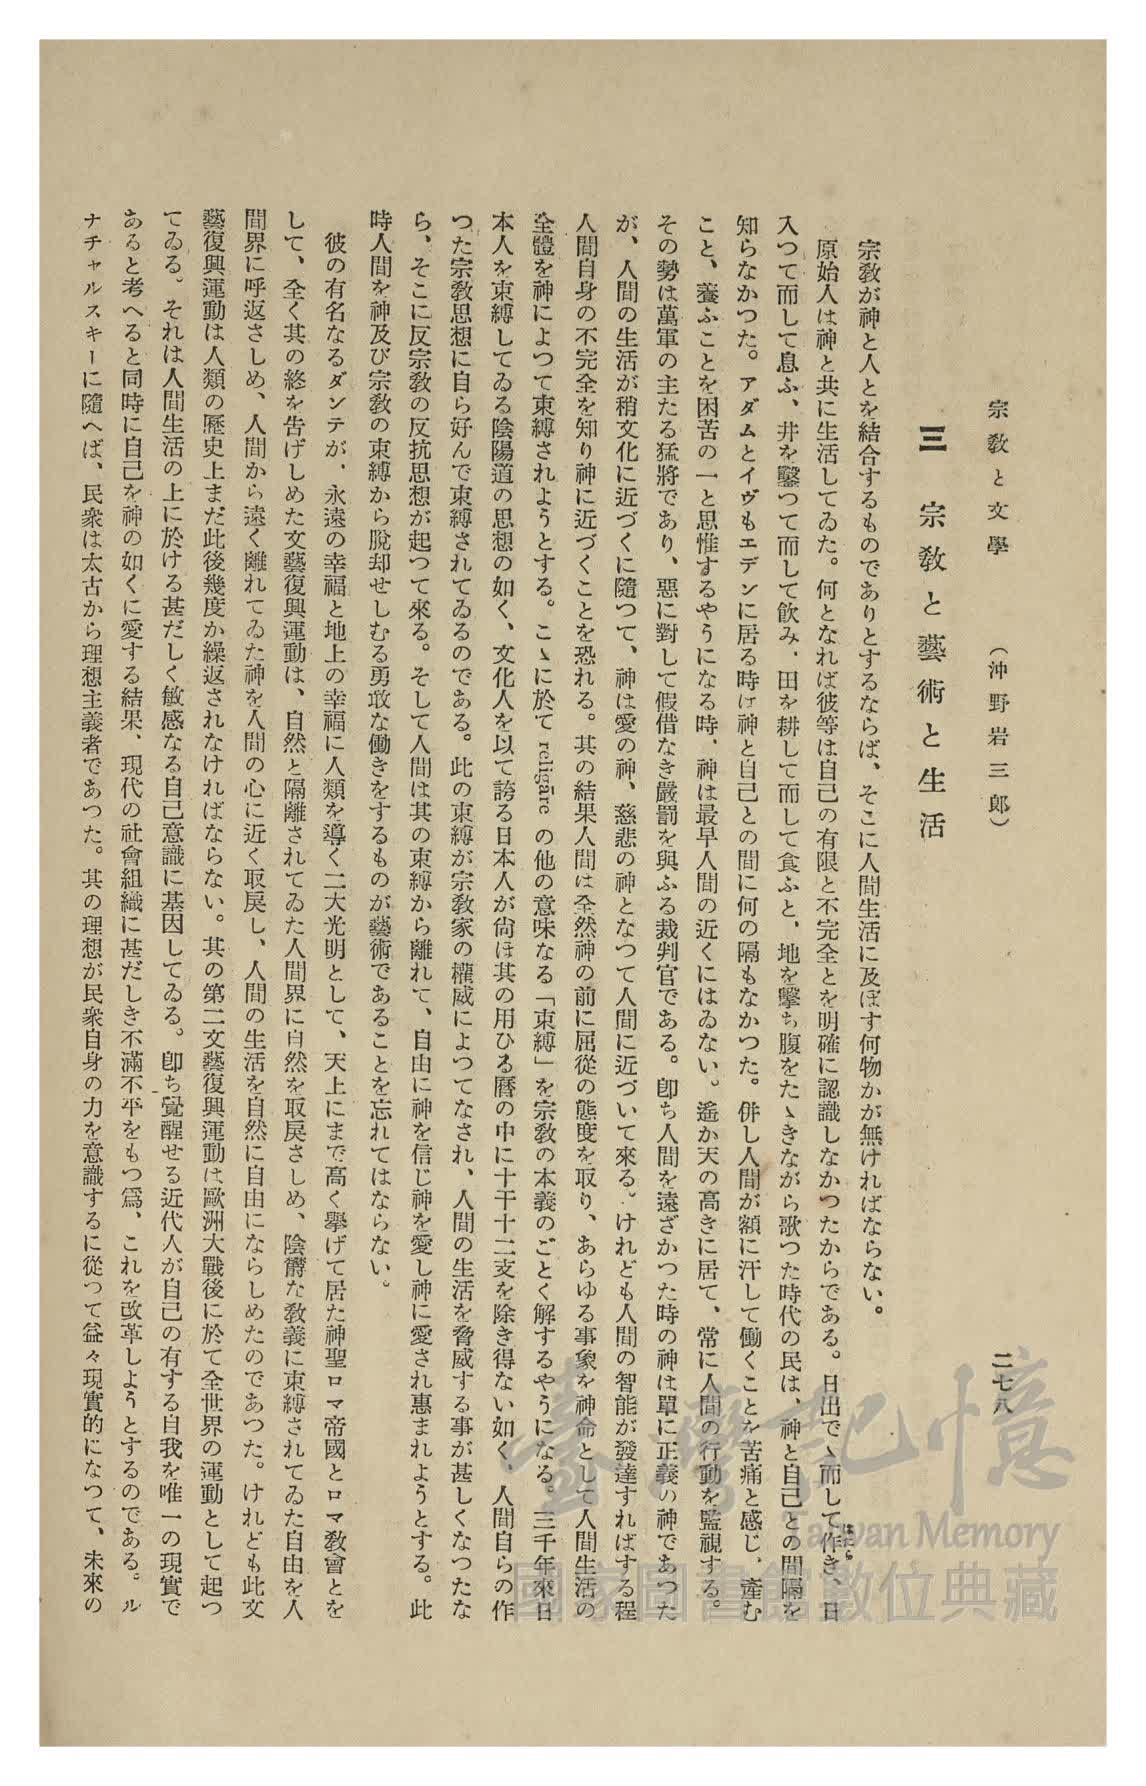 宗教と文學　（沖野岩三郎）　二七八
三　宗教と藝術と生活
宗教が神と人とを結合するものでありとするならば、そこに人間生活に及ぼす何物かが無ければならない。
原始人は神と共に生活してゐた。何となれば彼等は自己の有限と不完全とを明確に認識しなかつたからである。日出でゝ而して作き、日
はたら
入つて而して息ふ、井を鑿つて而して飮み、田を耕して而して食ふと、地を擊ち腹をたゝきながら歌つた時代の民は、神と自己との間隔を
知らなかつた。アダムとイヴもエデンに居る時は神と自己との間に何の隔もなかつた。併し人間が額に汗して働くことを苦痛と感じ、產む
こと、養ふことを困苦の一と思惟するやうになる時、神は最早人間の近くにはゐない。遙か天の高きに居て、常に人間の行動を監視する。
その勢は萬軍の主たる猛將であり、惡に對して假借なき嚴罰を與ふる裁判官である。卽ち人間を遠ざかつた時の神は單に正義の神であつた
が、人間の生活が稍文化に近づくに隨つて、神は愛の神、慈悲の神となつて人間に近づいて來る。けれども人間の智能が發達すればする程
人間自身の不完全を知り神に近づくことを恐れる。其の結果人間は全然神の前に屈從の態度を取り、あらゆる事象を神命として人間生活の
全體を神によつて束縛されようとする。こゝに於て religāre の他の意味なる「束縛」を宗教の本義のごとく解するやうになる。三千年來日
本人を束縛してゐる陰陽道の思想の如く、文化人を以て誇る日本人が尙ほ其の用ひる曆の中に十干十二支を除き得ない如く、人間自らの作
つた宗教思想に自ら好んで束縛されてゐるのである。此の束縛が宗教家の權威によつてなされ、人間の生活を脅威する事が甚しくなつたな
ら、そこに反宗教の反抗思想が起つて來る。そして人間は其の束縛から離れて、自由に神を信じ神を愛し神に愛され惠まれようとする。此
時人間を神及び宗教の束縛から脫却せしむる勇敢な働きをするものが藝術であることを忘れてはならない。
彼の有名なるダンテが、永遠の幸福と地上の幸福に人類を導く二大光明として、天上にまで高く擧げて居た神聖ロマ帝國とロマ教會とを
して、全く其の終を告げしめた文藝復興運動は、自然と隔離されてゐた人間界に自然を取戾さしめ、陰欝な教義に束縛されてゐた自由を人
間界に呼返さしめ、人間から遠く離れてゐた神を人間の心に近く取戾し、人間の生活を自然に自由にならしめたのであつた。けれども此文
藝復興運動は人類の歷史上まだ此後幾度か繰返されなければならない。其の第二文藝復興運動は歐洲大戰後に於て全世界の運動として起つ
てゐる。それは人間生活の上に於ける甚だしく敏感なる自己意識に基因してゐる。卽ち覺醒せる近代人が自己の有する自我を唯一の現實で
あると考へると同時に自己を神の如くに愛する結果、現代の社會組織に甚だしき不滿不平をもつ爲、これを改革しようとするのである。ル
ナチャルスキーに隨へば、民衆は太古から理想主義者であつた。其の理想が民衆自身の力を意識するに從つて益々現實的になつて、未來の
臺灣記憶
Taiwan Memory
國家圖書館數位典藏